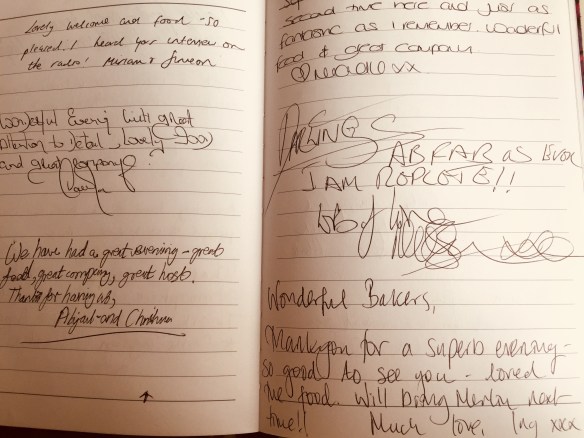 Lovely welcome and food - so
pleased I heard your interview on
the radio! Miriam & Simeon
Wonderful Evening with great
attention to detail, lovely food
and great company!
We have had a great evening - great
food, great company, great host.
Thanks for having us,
Abigail and
second time here and just as
fantastic as I remember. Wonderful
food & great company
xx
DARLINGS
ABFAB as Ever
I AM REPLETE!!
lots of love
Wonderful Bakers,
Thankyou for a superb evening -
so good to see you - loved
the food. Will bring Merlin next
time!! Much love, Ing xxx